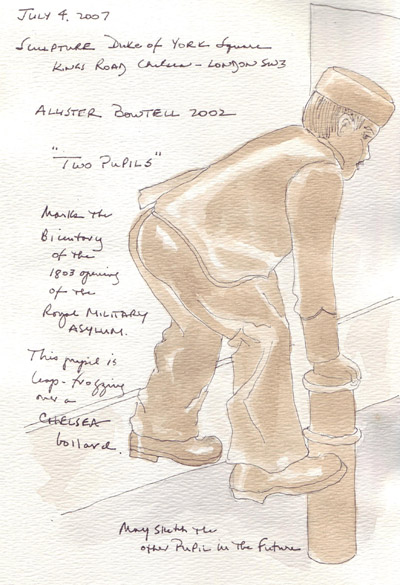 JULY 4, 2007
SCULPTURE DUKE of YORK Square
KINGS ROAD Chelsea - LONDON SW3
ALLISTER BOWTELL 2002
"TWO PUPILS"
Marks the
Bicentary
of the
1803 opening
of the
Royal MILITARY
ASYLUM.
This pupil is
leap-frogging
over a
CHELSEA
bollard.
May sketch the
other Pupil in The Future